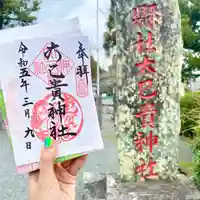 奉拝
大己貴神社
令和五年三月九日
縣社大己貴神社